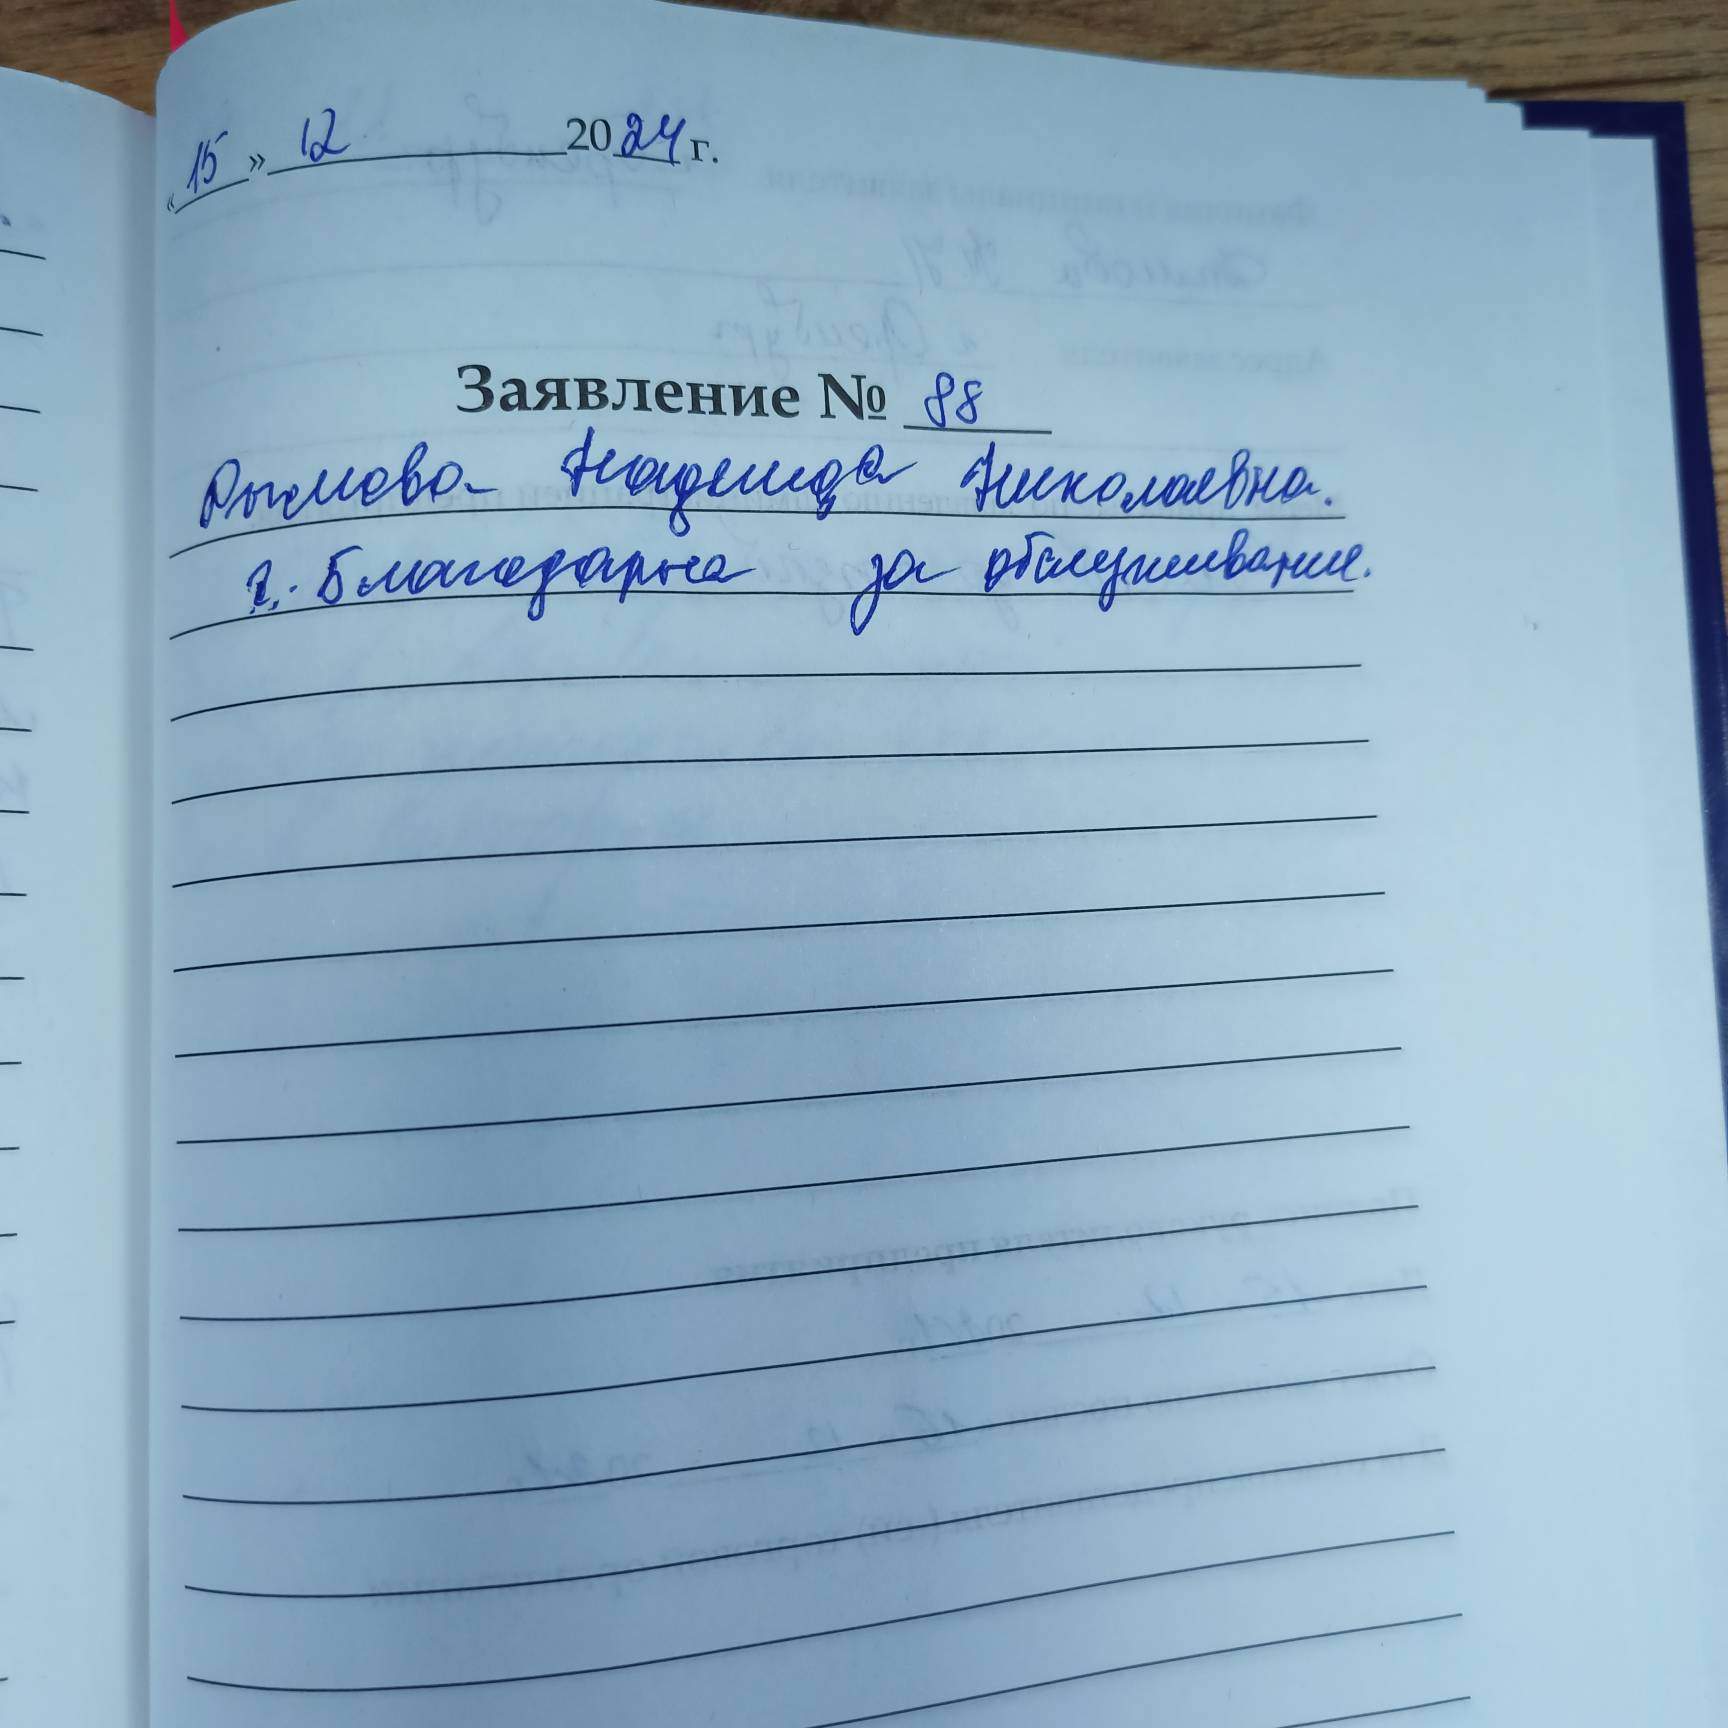 «15» 12 2024 г.
Заявление № 88
Дымова Надежда Николаевна.
г. Благодарна за обслуживание.